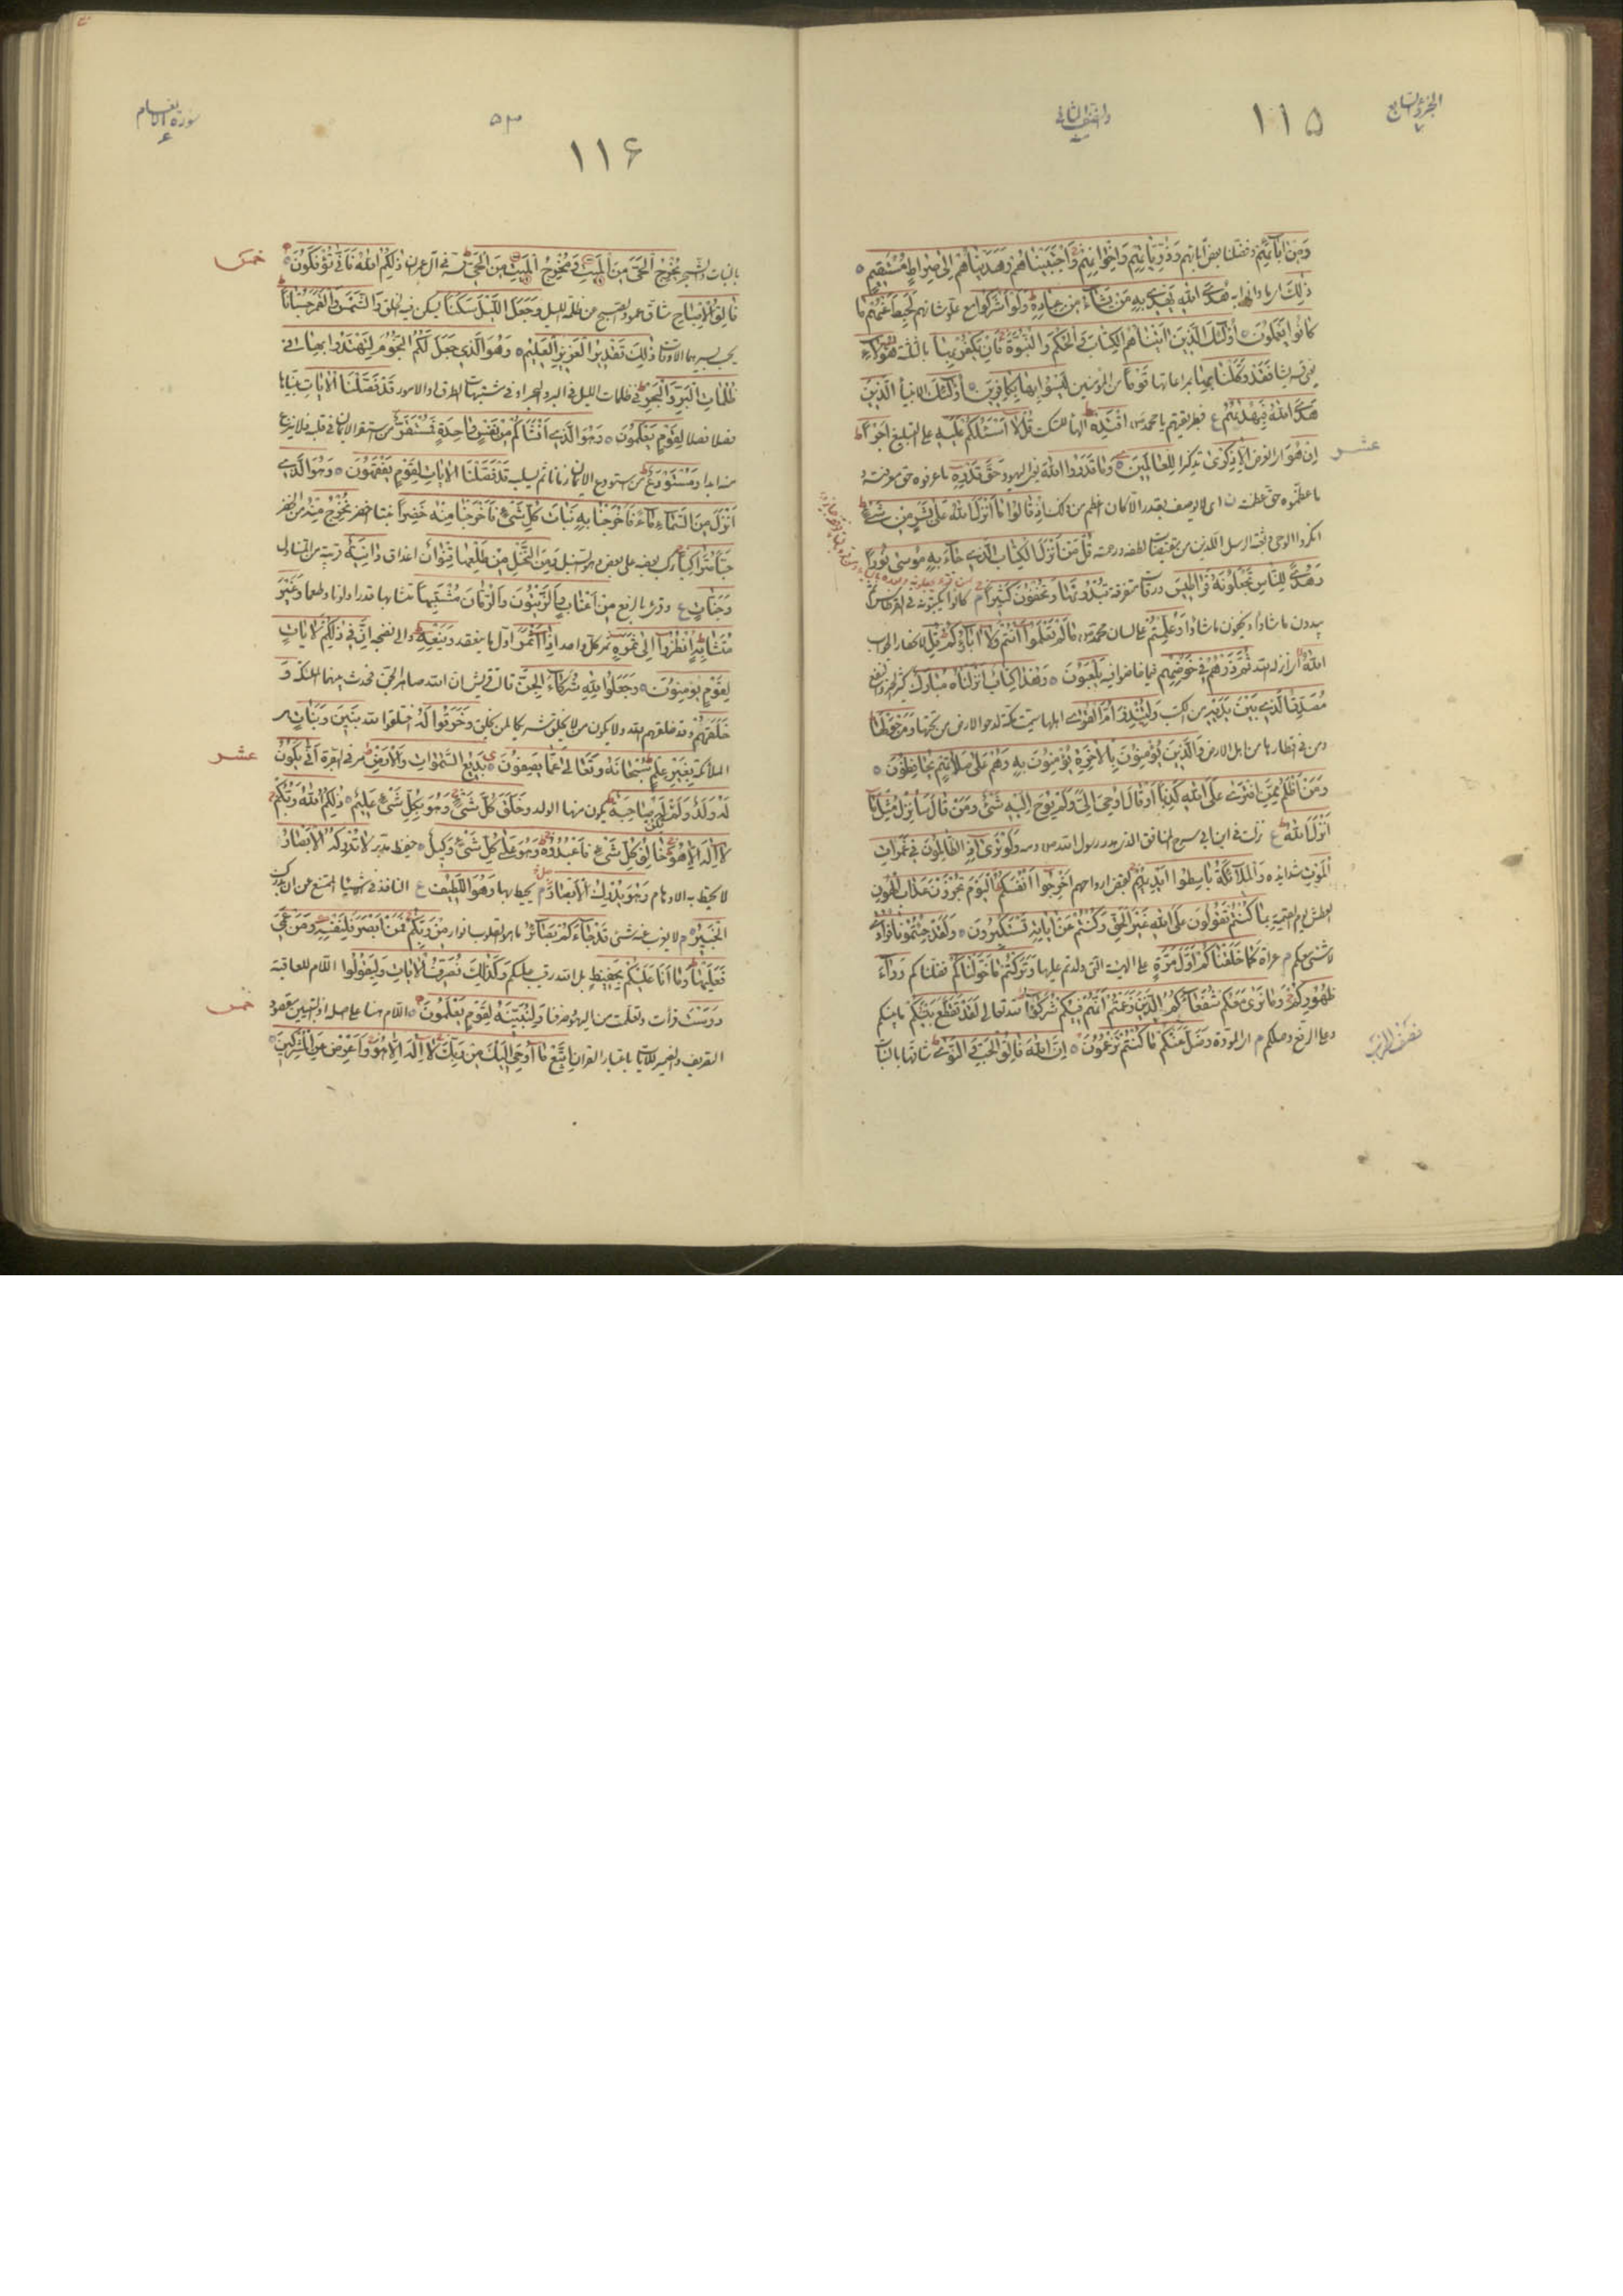 الجزؤ السابع
٧
١١٥
والنصف الثانی
وَمِنْ اٰبَآئِهِمْ وفضلنا بعض اٰبائهم وَذُرِّيَّاتِهِمْ وَاِخْوَانِهِمْ وَاجْتَبَيْنَاهُمْ وَهَدَيْنَاهُمْ اِلٰى صِرَاطٍ مُسْتَقِيمٍ
ذٰلِكَ هُدَى اللهِ يَهْدِى بِهِ مَنْ يَشَآءُ مِنْ عِبَادِهِ وَلَوْ اَشْرَكُوا مع علو شانهم لَحَبِطَ عَنْهُمْ مَا
كَانُوا يَعْمَلُونَ اُولٰئِكَ الَّذِينَ اٰتَيْنَاهُمُ الْكِتَابَ وَالْحُكْمَ وَالنُّبُوَّةَ فَاِنْ يَكْفُرْ بِهَا بالثلثة هٰؤُلَآءِ
يعنى قريشا فَقَدْ وَكَّلْنَا بِهَا بمراعاتها قَوْمًا من المؤمنين لَيْسُوا بِهَا بِكَافِرِينَ اُولٰئِكَ الانبيآء الَّذِينَ
هَدَى اللهُ فَبِهُدٰيهُمُ فبطريقتهم يا محمد اقْتَدِهْ الهآء للسكت قُلْ لَا اَسْئَلُكُمْ عَلَيْهِ على التبليغ اَجْرًا
عشر
اِنْ هُوَ الغرض اِلَّا ذِكْرٰى تذكيرا لِلْعَالَمِينَ وَمَا قَدَرُوا اللهَ اليهود حَقَّ قَدْرِهِ ما عرفوه حق معرفته و
ما عظموه حق عظمته اى لا يوصف بقدر الا كان اعظم من ذلك اِذْ قَالُوا مَا اَنْزَلَ اللهُ عَلٰى بَشَرٍ مِنْ شَىْءٍ
انكروا الوحى وبعثة الرسل اللذين من لطفه ورحمته قُلْ مَنْ اَنْزَلَ الْكِتَابَ الَّذِى جَآءَ بِهِ مُوسٰى نُورًا
وَهُدًى لِلنَّاسِ تَجْعَلُونَهُ قَرَاطِيسَ ورقات متفرقة تُبْدُونَهَا وَتُخْفُونَ كَثِيرًا كانوا يكتبونه فى القراطيس ثم
يبدون ما شاؤا ويخفون ما شاؤا وَعُلِّمْتُمْ على لسان محمد مَا لَمْ تَعْلَمُوا اَنْتُمْ وَلَا اٰبَآؤُكُمْ قُلِ
اللهُ انزله الله ثُمَّ ذَرْهُمْ فِى خَوْضِهِمْ فيما خاضوا فيه يَلْعَبُونَ وَهٰذَا كِتَابٌ اَنْزَلْنَاهُ مُبَارَكٌ كثير النفع
مُصَدِّقُ الَّذِى بَيْنَ يَدَيْهِ من الكتب وَلِتُنْذِرَ اُمَّ الْقُرٰى اهلها سميت مكة لدحو الارض من تحتها وَمَنْ حَوْلَهَا
ومن فى اقطارها من اهل الارض وَالَّذِينَ يُؤْمِنُونَ بِالْاٰخِرَةِ يُؤْمِنُونَ بِهِ وَهُمْ عَلٰى صَلَاتِهِمْ يُحَافِظُونَ
وَمَنْ اَظْلَمُ مِمَّنِ افْتَرٰى عَلَى اللهِ كَذِبًا اَوْ قَالَ اُوحِىَ اِلَىَّ وَلَمْ يُوحَ اِلَيْهِ شَىْءٌ وَمَنْ قَالَ سَاُنْزِلُ مِثْلَ مَا
اَنْزَلَ اللهُ نزلت فى ابن ابى سرح المنافق وَلَوْ تَرٰى اِذِ الظَّالِمُونَ فِى غَمَرَاتِ
الْمَوْتِ شدايده وَالْمَلَآئِكَةُ بَاسِطُوا اَيْدِيهِمْ لقبض ارواحهم اَخْرِجُوا اَنْفُسَكُمُ الْيَوْمَ تُجْزَوْنَ عَذَابَ الْهُونِ
العطش يوم القيمة بِمَا كُنْتُمْ تَقُولُونَ عَلَى اللهِ غَيْرَ الْحَقِّ وَكُنْتُمْ عَنْ اٰيَاتِهِ تَسْتَكْبِرُونَ وَلَقَدْ جِئْتُمُونَا فُرَادٰى
لا شىء معكم عراة كَمَا خَلَقْنَاكُمْ اَوَّلَ مَرَّةٍ على الهيئة التى ولدتم عليها وَتَرَكْتُمْ مَا خَوَّلْنَاكُمْ نقلناكم وَرَآءَ
ظُهُورِكُمْ وَمَا نَرٰى مَعَكُمْ شُفَعَآءَكُمُ الَّذِينَ زَعَمْتُمْ اَنَّهُمْ فِيكُمْ شُرَكَآءُ لله تعالى لَقَدْ تَقَطَّعَ بَيْنَكُمْ ما بينكم
وعلى الرفع وصلكم او المودة وَضَلَّ عَنْكُمْ مَا كُنْتُمْ تَزْعُمُونَ اِنَّ اللهَ فَالِقُ الْحَبِّ وَالنَّوٰى شاقها بالنبات
نصف الحزب
سورة الانعام
٦
٥٣
١١۶
بالنبات والشجر يُخْرِجُ الْحَىَّ مِنَ الْمَيِّتِ وَمُخْرِجُ الْمَيِّتِ مِنَ الْحَىِّ مر فى اٰل عمران ذٰلِكُمُ اللهُ فَاَنّٰى تُؤْفَكُونَ
خمس
فَالِقُ الْاِصْبَاحِ شاق عمود الصبح عن ظلمة الليل وَجَعَلَ اللَّيْلَ سَكَنًا يسكن فيه الخلق وَالشَّمْسَ وَالْقَمَرَ حُسْبَانًا
يحسب بسيرهما الاوقات ذٰلِكَ تَقْدِيرُ الْعَزِيزِ الْعَلِيمِ وَهُوَ الَّذِى جَعَلَ لَكُمُ النُّجُومَ لِتَهْتَدُوا بِهَا فِى
ظُلُمَاتِ الْبَرِّ وَالْبَحْرِ فى ظلمات الليل فى البر والبحر او فى مشتبهات الطرق او الامور قَدْ فَصَّلْنَا الْاٰيَاتِ بيناها
فصلا فصلا لِقَوْمٍ يَعْلَمُونَ وَهُوَ الَّذِى اَنْشَاَكُمْ مِنْ نَفْسٍ وَاحِدَةٍ فَمُسْتَقَرٌّ من استقر الايمان فى قلبه فلا ينزع
منه ابدا وَمُسْتَوْدَعٌ من استودع الايمان زمانا ثم يسلبه قَدْ فَصَّلْنَا الْاٰيَاتِ لِقَوْمٍ يَفْقَهُونَ وَهُوَ الَّذِى
اَنْزَلَ مِنَ السَّمَآءِ مَآءً فَاَخْرَجْنَا بِهِ نَبَاتَ كُلِّ شَىْءٍ فَاَخْرَجْنَا مِنْهُ خَضِرًا نبتا اخضر نُخْرِجُ مِنْهُ من الخضر
حَبًّا مُتَرَاكِبًا ركب بعضه على بعض وهو السنبل وَمِنَ النَّخْلِ مِنْ طَلْعِهَا قِنْوَانٌ اعذاق دَانِيَةٌ قريبة من المتناول
وَجَنَّاتٍ وقرئ بالرفع مِنْ اَعْنَابٍ وَالزَّيْتُونَ وَالرُّمَّانَ مُشْتَبِهًا متشابها قدرا ولونا وطعما وَغَيْرَ
مُتَشَابِهٍ اُنْظُرُوا اِلٰى ثَمَرِهِ ثمر كل واحد اِذَا اَثْمَرَ اول ما ينعقد وَيَنْعِهِ والى نضجه اِنَّ فِى ذٰلِكُمْ لَاٰيَاتٍ
لِقَوْمٍ يُؤْمِنُونَ وَجَعَلُوا لِلّٰهِ شُرَكَآءَ الْجِنَّ قالت قريش ان الله صاهر الجن فحدث بينهما الملئكة وَ
خَلَقَهُمْ وقد خلقهم الله ولا يكون من لا يخلق شريكا لمن يخلق وَخَرَقُوا لَهُ اختلقوا لله بَنِينَ وَبَنَاتٍ
الملائكة بِغَيْرِ عِلْمٍ سُبْحَانَهُ وَتَعَالٰى عَمَّا يَصِفُونَ بَدِيعُ السَّمٰوَاتِ وَالْاَرْضِ مر فى البقرة اَنّٰى يَكُونُ
عشر
لَهُ وَلَدٌ وَلَمْ تَكُنْ لَهُ صَاحِبَةٌ يكون منها الولد وَخَلَقَ كُلَّ شَىْءٍ وَهُوَ بِكُلِّ شَىْءٍ عَلِيمٌ ذٰلِكُمُ اللهُ رَبُّكُمْ
لَا اِلٰهَ اِلَّا هُوَ خَالِقُ كُلِّ شَىْءٍ فَاعْبُدُوهُ وَهُوَ عَلٰى كُلِّ شَىْءٍ وَكِيلٌ حفيظ مدبر لَا تُدْرِكُهُ الْاَبْصَارُ
لا تحيط به الاوهام وَهُوَ يُدْرِكُ الْاَبْصَارَ يحيط بها وَهُوَ اللَّطِيفُ النافذ فى الاشيآء الممتنع من ان يدرك
الْخَبِيرُ لا يعزب عنه شىء قَدْ جَآءَكُمْ بَصَآئِرُ مِنْ رَبِّكُمْ فَمَنْ اَبْصَرَ فَلِنَفْسِهِ وَمَنْ عَمِىَ
فَعَلَيْهَا وَمَا اَنَا عَلَيْكُمْ بِحَفِيظٍ بل الله رقيب عليكم وَكَذٰلِكَ نُصَرِّفُ الْاٰيَاتِ وَلِيَقُولُوا اللام للعاقبة
دَرَسْتَ قرات وتعلمت من اليهود وَلِنُبَيِّنَهُ لِقَوْمٍ يَعْلَمُونَ اللام هنا على اصله اذ التبيين مقصود
خمس
التصريف والضمير للايات باعتبار القران اِتَّبِعْ مَا اُوحِىَ اِلَيْكَ مِنْ رَبِّكَ لَا اِلٰهَ اِلَّا هُوَ وَاَعْرِضْ عَنِ الْمُشْرِكِينَ